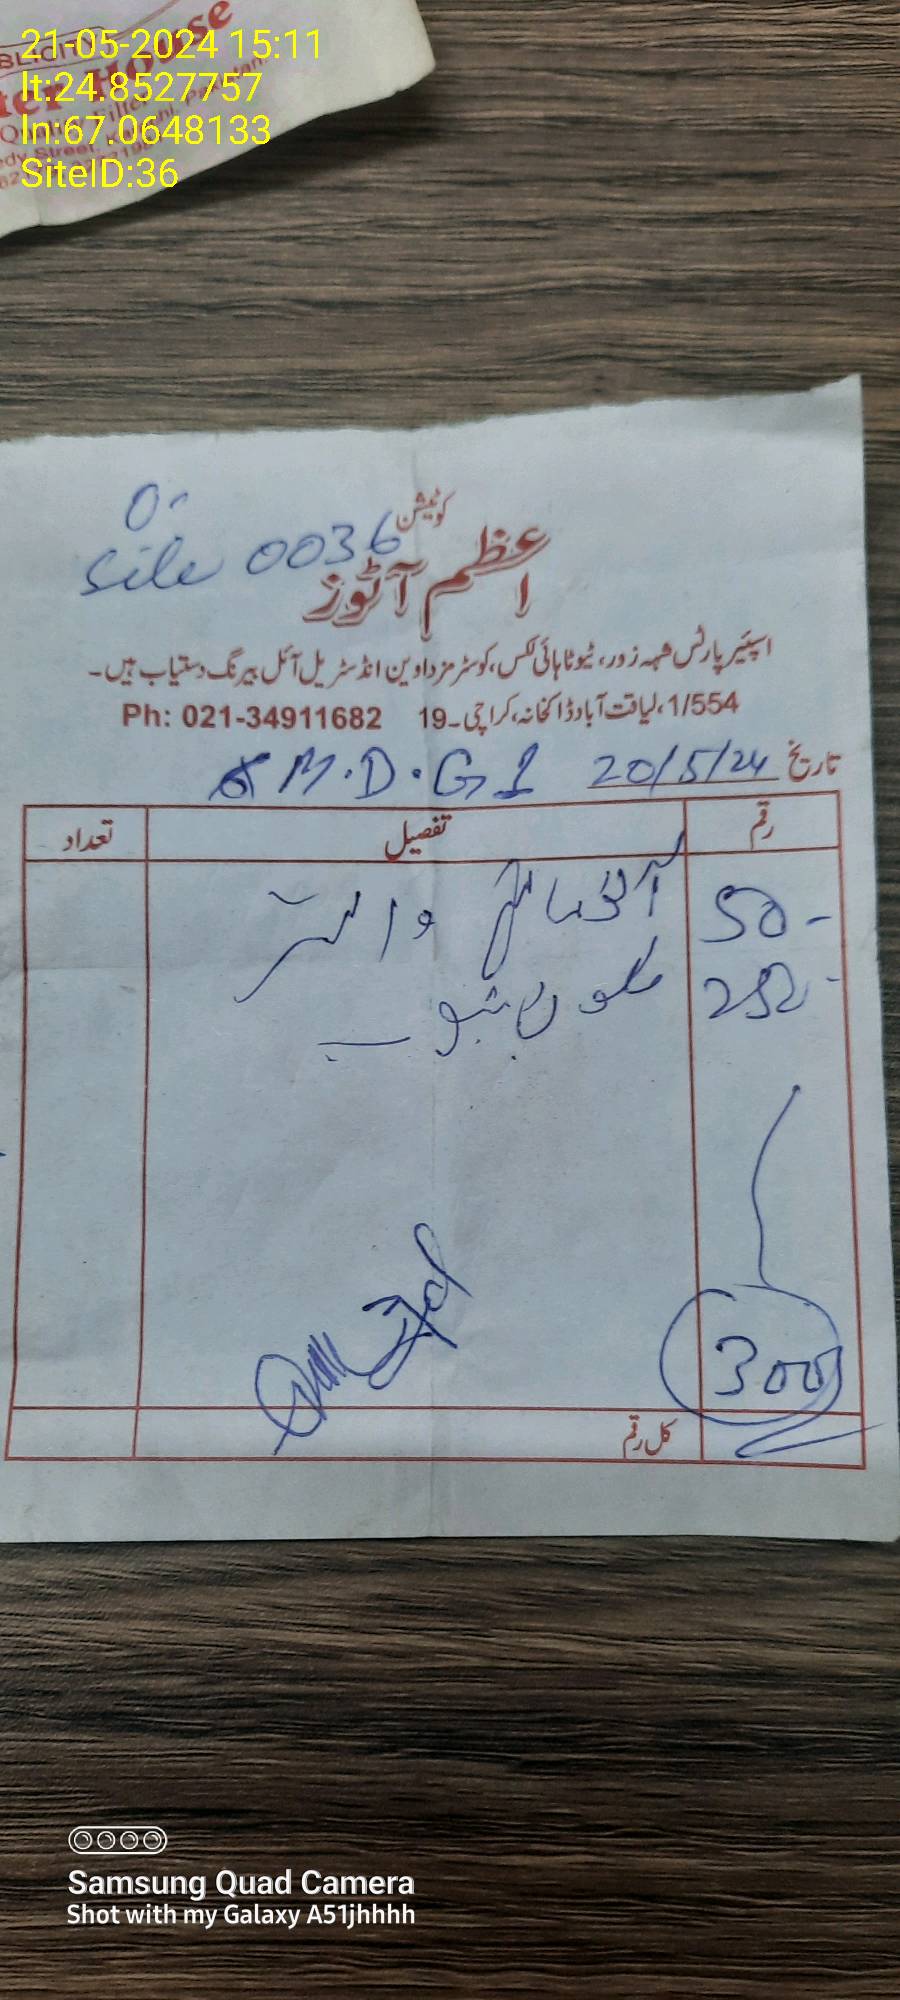 21-05-2024 15:11
lt:24.8527757
ln:67.0648133
SiteID:36
House
کوٹیشن
Site 0036
اعظم آٹوز
اسپئیر پارٹس شہہ زور، ٹیوٹا ہائی لکس، کوسٹر مزدا وین انڈسٹریل آئل بیرنگ دستیاب ہیں۔
1/554، لیاقت آباد ڈاکخانہ، کراچی۔19 Ph: 021-34911682
تاریخ 20/5/24 M.D.G1
رقم تفصیل تعداد
50-
250- سلیکون ٹیوب
300
کل رقم
Samsung Quad Camera
Shot with my Galaxy A51jhhhh